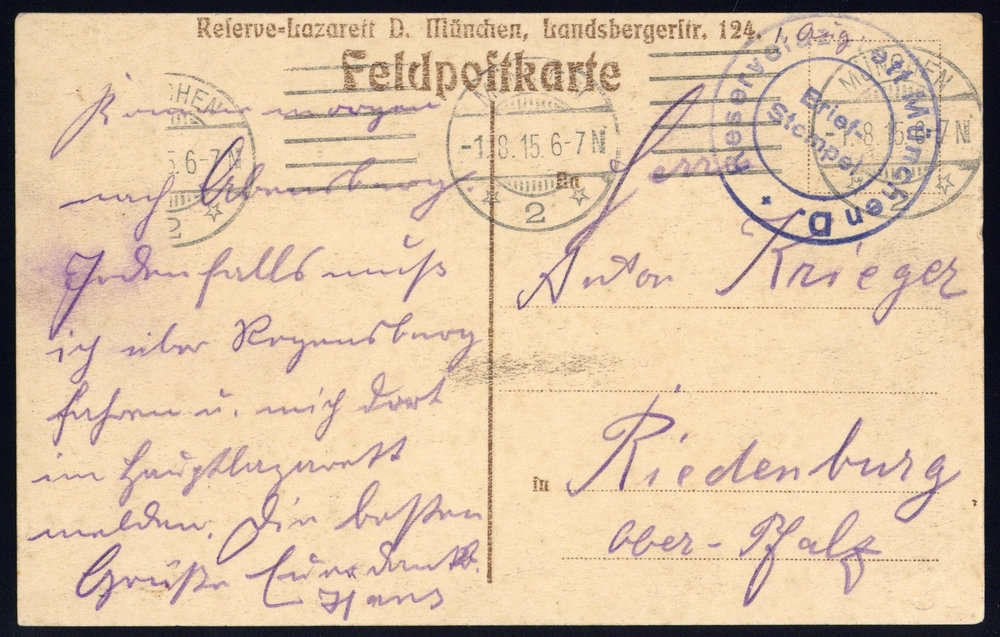 Reserve-Lazarett D. München, Landsbergerstr. 124.
1. Aug.
Feldpostkarte
MÜNCHEN
-1.8.15.6-7N
2
Reservelazarett München D.
Brief-
Stempel.
Komme morgen
nach Abensburg.
Jedenfalls muß
ich über Regensburg
fahren u. mich dort
im Hauptlazarett
melden. Die besten
Grüße Euer dankb.
Hans
An
Herrn
Anton Krieger
in
Riedenburg
Ober-Pfalz